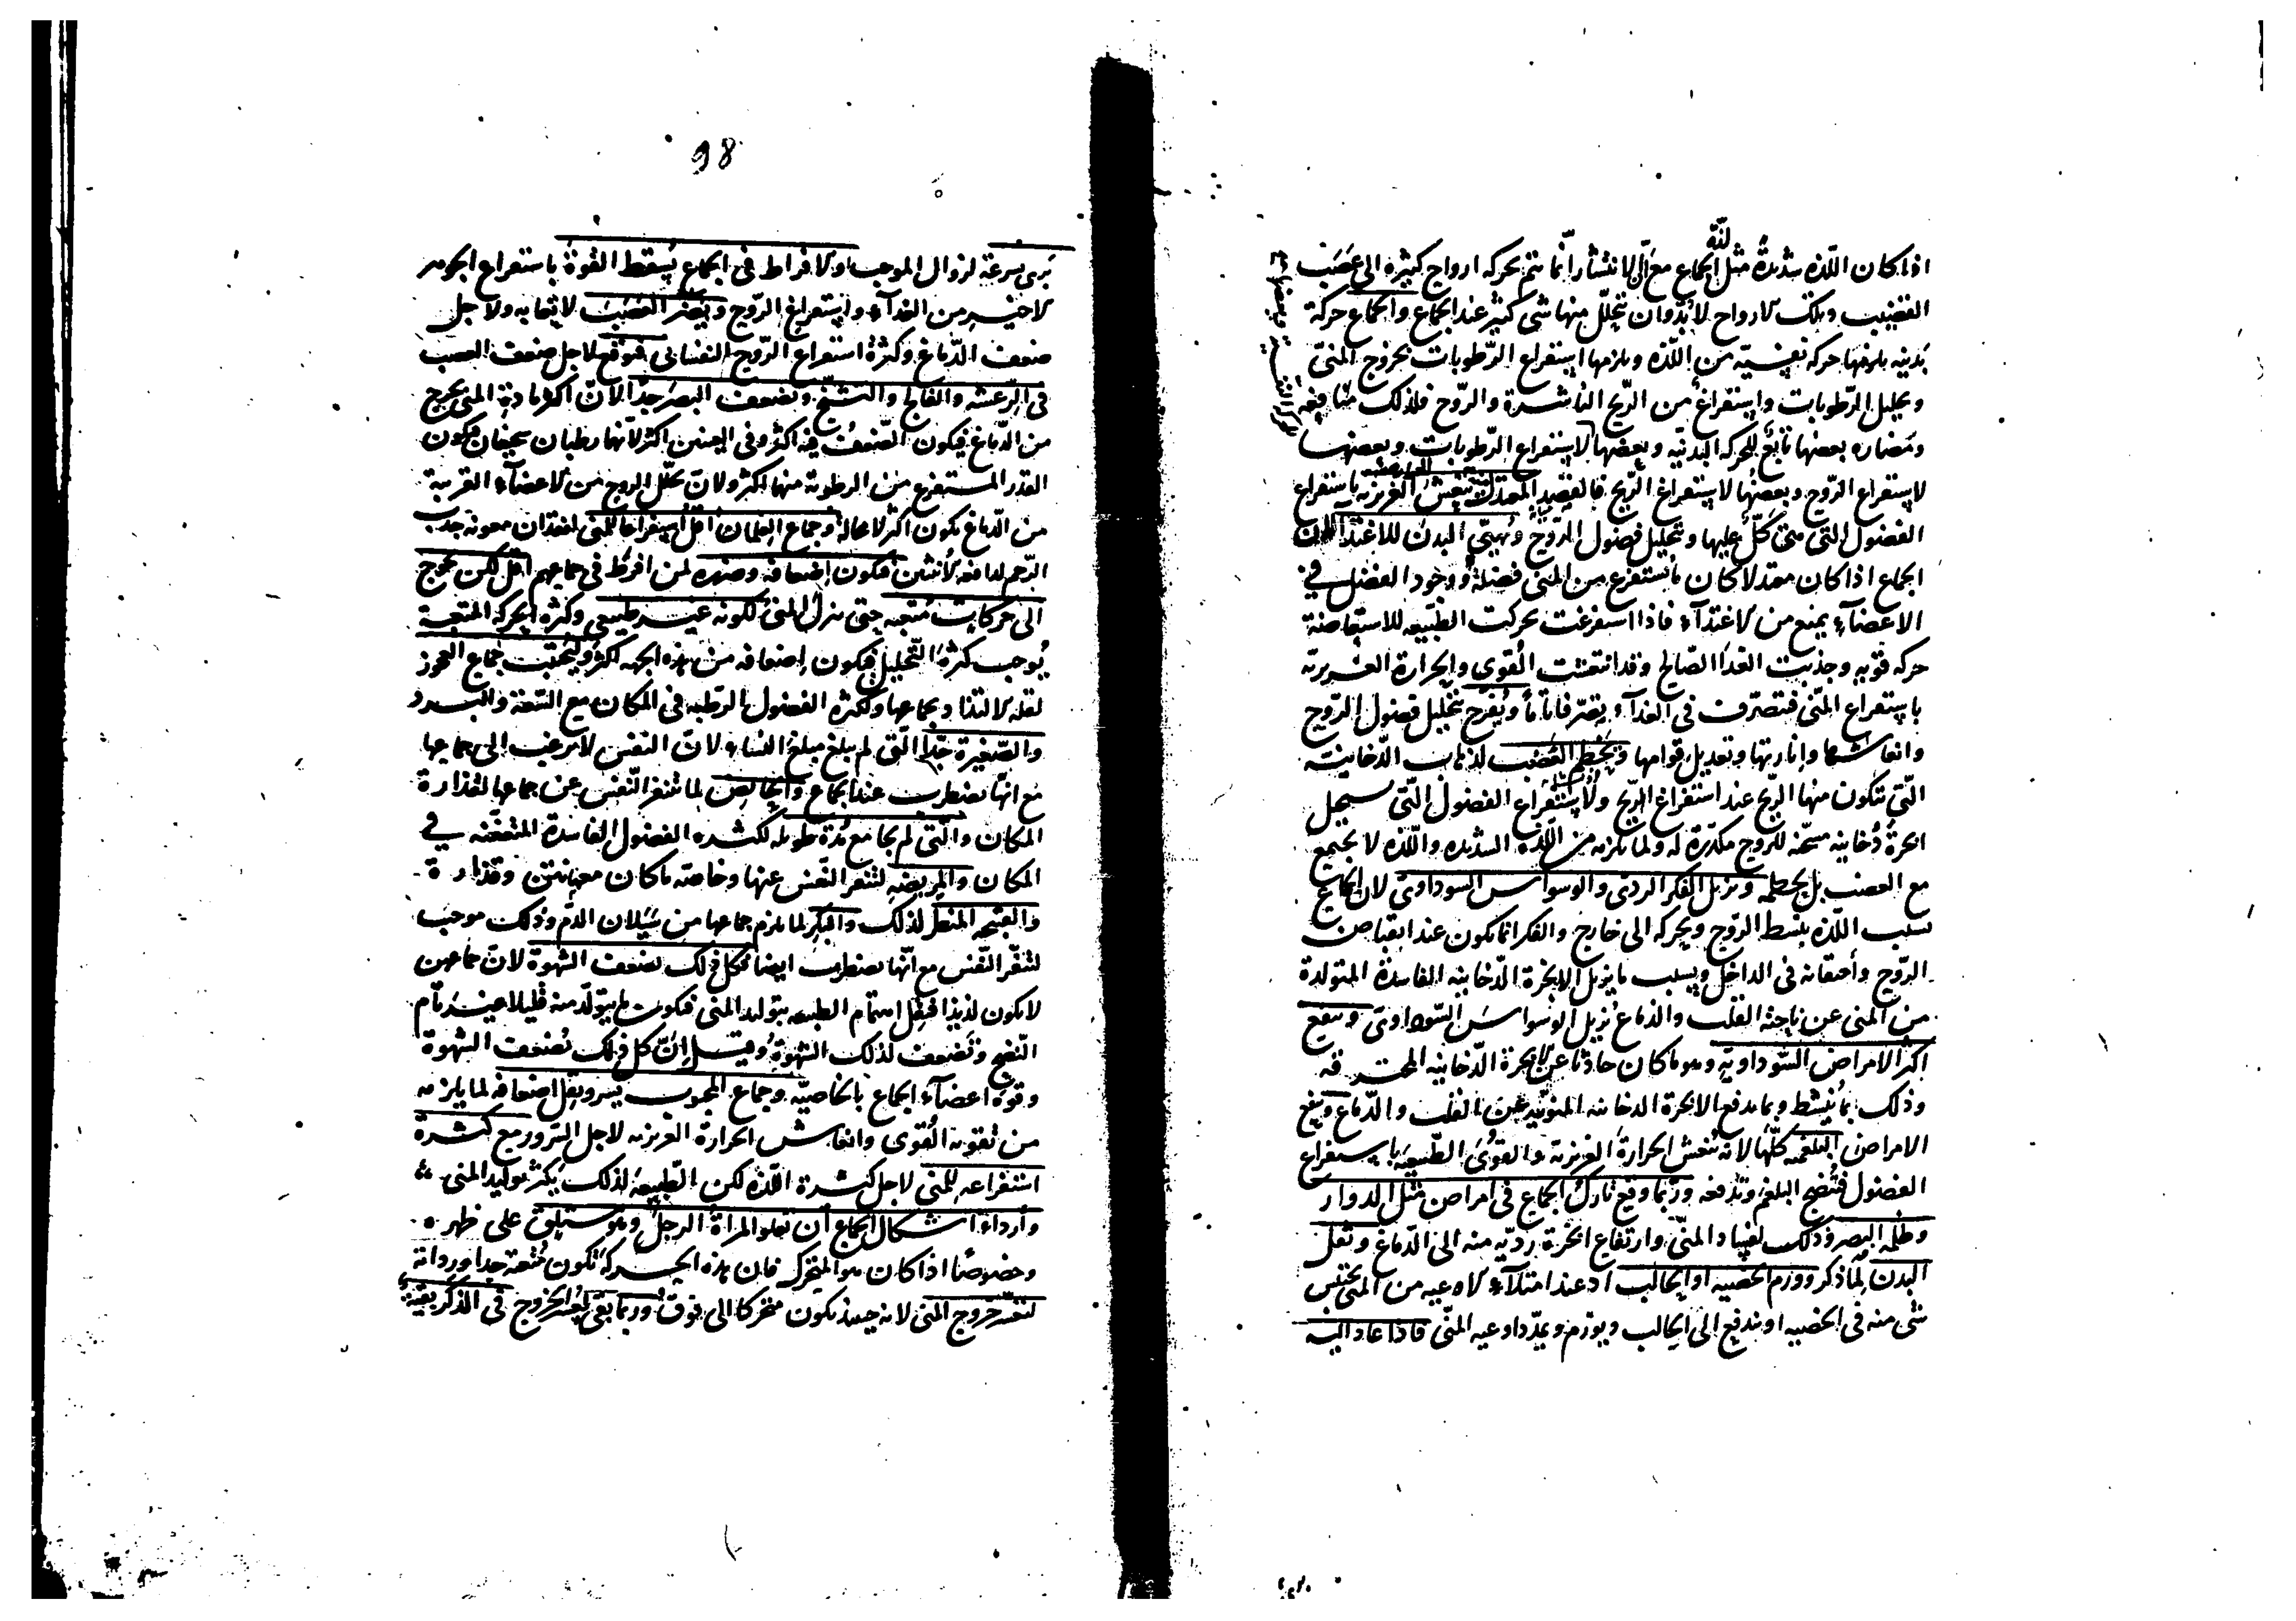 اذا كان اللذة شديدة مثل لذة الجماع مع ان الانتشار انما تتم بحركه ارواح كثيره الى عصب
القضيب وتلك الارواح لا بد وان تتحلل منها شى كثير عند الجماع والجماع حركة
بدنيه يلزمها حركه نفسيته من اللذه ويلزمها استفراغ الرطوبات بخروج المنى
وتحليل الرطوبات واستفراغ من الريح الناشرة والروح فلذلك منافعه
ومضاره بعضها تابع للحركه البدنيه وبعضها لاستفراغ الرطوبات وبعضها
لاستفراغ الروح وبعضها لاستفراغ الريح فالقصد المعتدل منه ينعش الحرارة الغريزيه باستفراغ
الفضول التى هى كل عليها وتحليل فضول الروح ويهيئ البدن للاغتذا لان
الجماع اذا كان معتدلا كان ما يستفرغ من المنى فضلة ووجود الفضل فى
الاعضآء يمنع من الاغتذآء فاذا استفرغت تحركت الطبيعه للاستعاضة
حركه قويه وجذبت الغذا الصالح وقد انتعشت القوى والحرارة الغريزية
باستفراغ المنى فتصرف فى الغذآء تصرفا تاما ويفرح بتحليل فضول الروح
وانعاشها وانارتها وتعديل قوامها ويحطم الغضب لذهاب الدخانيه
التى تتكون منها الريح عند استفراغ الريح ولاستفراغ الفضول التى تستحيل
ابخرة دخانيه مسخنه للروح مكدرة له ولما يلزمه من اللذه الشديده واللذه لا تجتمع
مع الغضب بل يحطمه ويزيل الفكر الردى والوسواس السوداوى لان الجماع
بسبب اللذه ينشط الروح ويحركه الى خارج والفكر انما يكون عند انقباض
الروح واحتقانه فى الداخل وبسبب ما يزيل الابخرة الدخانيه الفاسدة المتولدة
من المنى عن ناحية القلب والدماغ يزيل الوسواس السوداوى وينفع
اكثر الامراض السوداويه وهو ما كان حادثا عن الابخرة الدخانيه المحترقه
وذلك بما ينشط وبما يدفع الابخرة الدخانيه المنويه عن القلب والدماغ وينفع
الامراض البلغميه كلها لانه تنعش الحرارة الغريزية والقوى الطبيعيه باستفراغ
الفضول فتنضج البلغم وتدفعه وربما وقع تارك الجماع فى امراض مثل الدوار
وظلمه البصر وذلك لفساد المنى وارتفاع ابخرة رديه منه الى الدماغ وثقل
البدن لما ذكر وورم الخصيه او الحالب اذ عند امتلآء الاوعيه من المنى يحتبس
شى منه فى الخصيه او يندفع الى الحالب ويورم ويمدد اوعيه المنى فاذا عاد اليه
98
برى بسرعة لزوال الموجب والافراط فى الجماع يسقط القوة باستفراغ الجوهر
الاخير من الغذآء واستفراغ الروح ويضر العصب لاتعابه ولاجل
ضعف الدماغ وكثرة استفراغ الروح النفسانى فيوقع لاجل ضعف العصب
فى الرعشه والفالج والتشنج ويضعف البصر جدا لان اكثر مادة المنى يخرج
من الدماغ فيكون الضعف فيه اكثر وفى العينين اكثر لانها رطبان سخيفان فيكون
القدر المستفرغ من الرطوبة منها اكثر ولان تحلل الروح من الاعضآء القريبة
من الدماغ يكون اكثر لا محالة وجماع الغلمان اقل استفراغا للمنى لفقدان معونة جذب
الرحم لدافعه الانثيين فيكون اضعافه وضرره لمن افرط فى جماعهم اقل لكن يحوج
الى حركات متعبه حتى ينزل المنى لكونه غير طبيعى وكثرة الحركه المتعبة
يوجب كثرة التحليل فيكون اضعافه من هذه الجهه اكثر وليجتنب جماع العجوز
لقلة الالتذاذ بجماعها ولكثرة الفضول الرطبه فى المكان مع التعفنة والبرد
والصغيرة جدا التى لم يبلغ مبلغ النساء لان النفس لا يرغب الى جماعها
مع انها تضطرب عند الجماع والحائض لما تنفر النفس عن جماعها لقذارة
المكان والتى لم يجامع مدة طويله لكثرة الفضول الفاسدة المتعفنه فى
المكان والمريضه لتنفر النفس عنها وخاصه ما كان معها نتن وقذارة
والقبيحه المنظر لذلك والبكر لما يلزم جماعها من سيلان الدم وذلك موجب
لتنفر النفس مع انها تضطرب ايضا فكل ذلك يضعف الشهوة لان جماعهن
لا يكون لذيذا فيقل اهتمام الطبيعه بتوليد المنى فيكون ما يتولد منه قليلا غير تام
النضج وتضعف لذلك الشهوة وقيل ان كل ذلك يضعف الشهوة
وقوة اعضآء الجماع بالخاصيه وجماع المحبوب يسر ويقل اضعافه لما يلزمه
من تقوية القوى وانعاش الحرارة الغريزيه لاجل السرور مع كثرة
استفراغه للمنى لاجل كثرة اللذه لكن الطبيعه لذلك يكثر توليد المنى
واردأ اشكال الجماع ان تعلو المراة الرجل وهو مستلق على ظهره
وخصوصا اذا كان هو المتحرك فان هذه الحركه تكون متعبه جدا ورداته
لتعسر خروج المنى لانه حينئذ يكون متحركا الى فوق وربما بقى لعسر الخروج فى الذكر بقيه